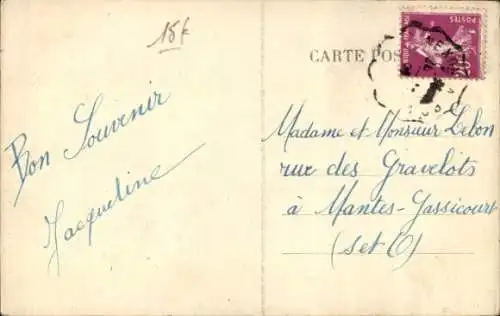 15f
CARTE POS
POSTES
20c
Bon Souvenir
Jacqueline
Madame et Monsieur Lebon
rue des Gravelots
à Mantes-Gassicourt
(Set O)